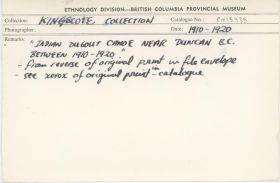 ETHNOLOGY DIVISION—BRITISH COLUMBIA PROVINCIAL MUSEUM
Collection: KINGSCOTE COLLECTION Catalogue No.:
Photographer: Date: 1910-1920
Remarks: "INDIAN DUGOUT CANOE NEAR DUNCAN B.C.
BETWEEN 1910-1920."
- from reverse of original print in file envelope
- see xerox of original print - catalogue